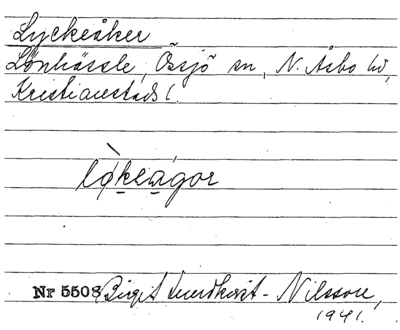 Lyckeåker
Lönhässle, Össjö sn, N. Åsbo hd,
Kristianstads l.
lø̀keágor
Nr 5503 Birgit Lundkvist-Nilsson,
1941.